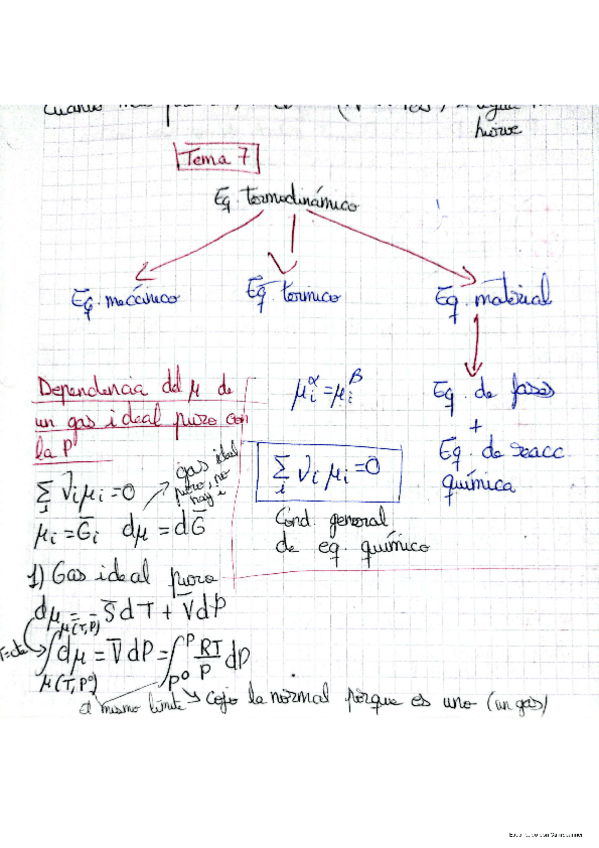 hierve
Tema 7
Eq. termodinámico
Eq. mecánico Eq. térmico Eq. material
Dependencia del μ de
un gas ideal puro con
la P
μᵢ^α = μᵢ^β
Eq. de fases
+
Eq. de reacc
química
Σᵢ νᵢ μᵢ = 0
Cond. general
de eq. químico
Σᵢ νᵢ μᵢ = 0
gas ideal
puro, no
hay i
μᵢ = G̅ᵢ dμ = dG̅
1) Gas ideal puro
dμ = -S̅dT + V̅dP
T=cte ∫_{μ(T,P⁰)}^{μ(T,P)} dμ = V̅dP = ∫_{P⁰}^{P} RT/P dP
el mismo límite → Cojo la normal porque es uno (un gas)